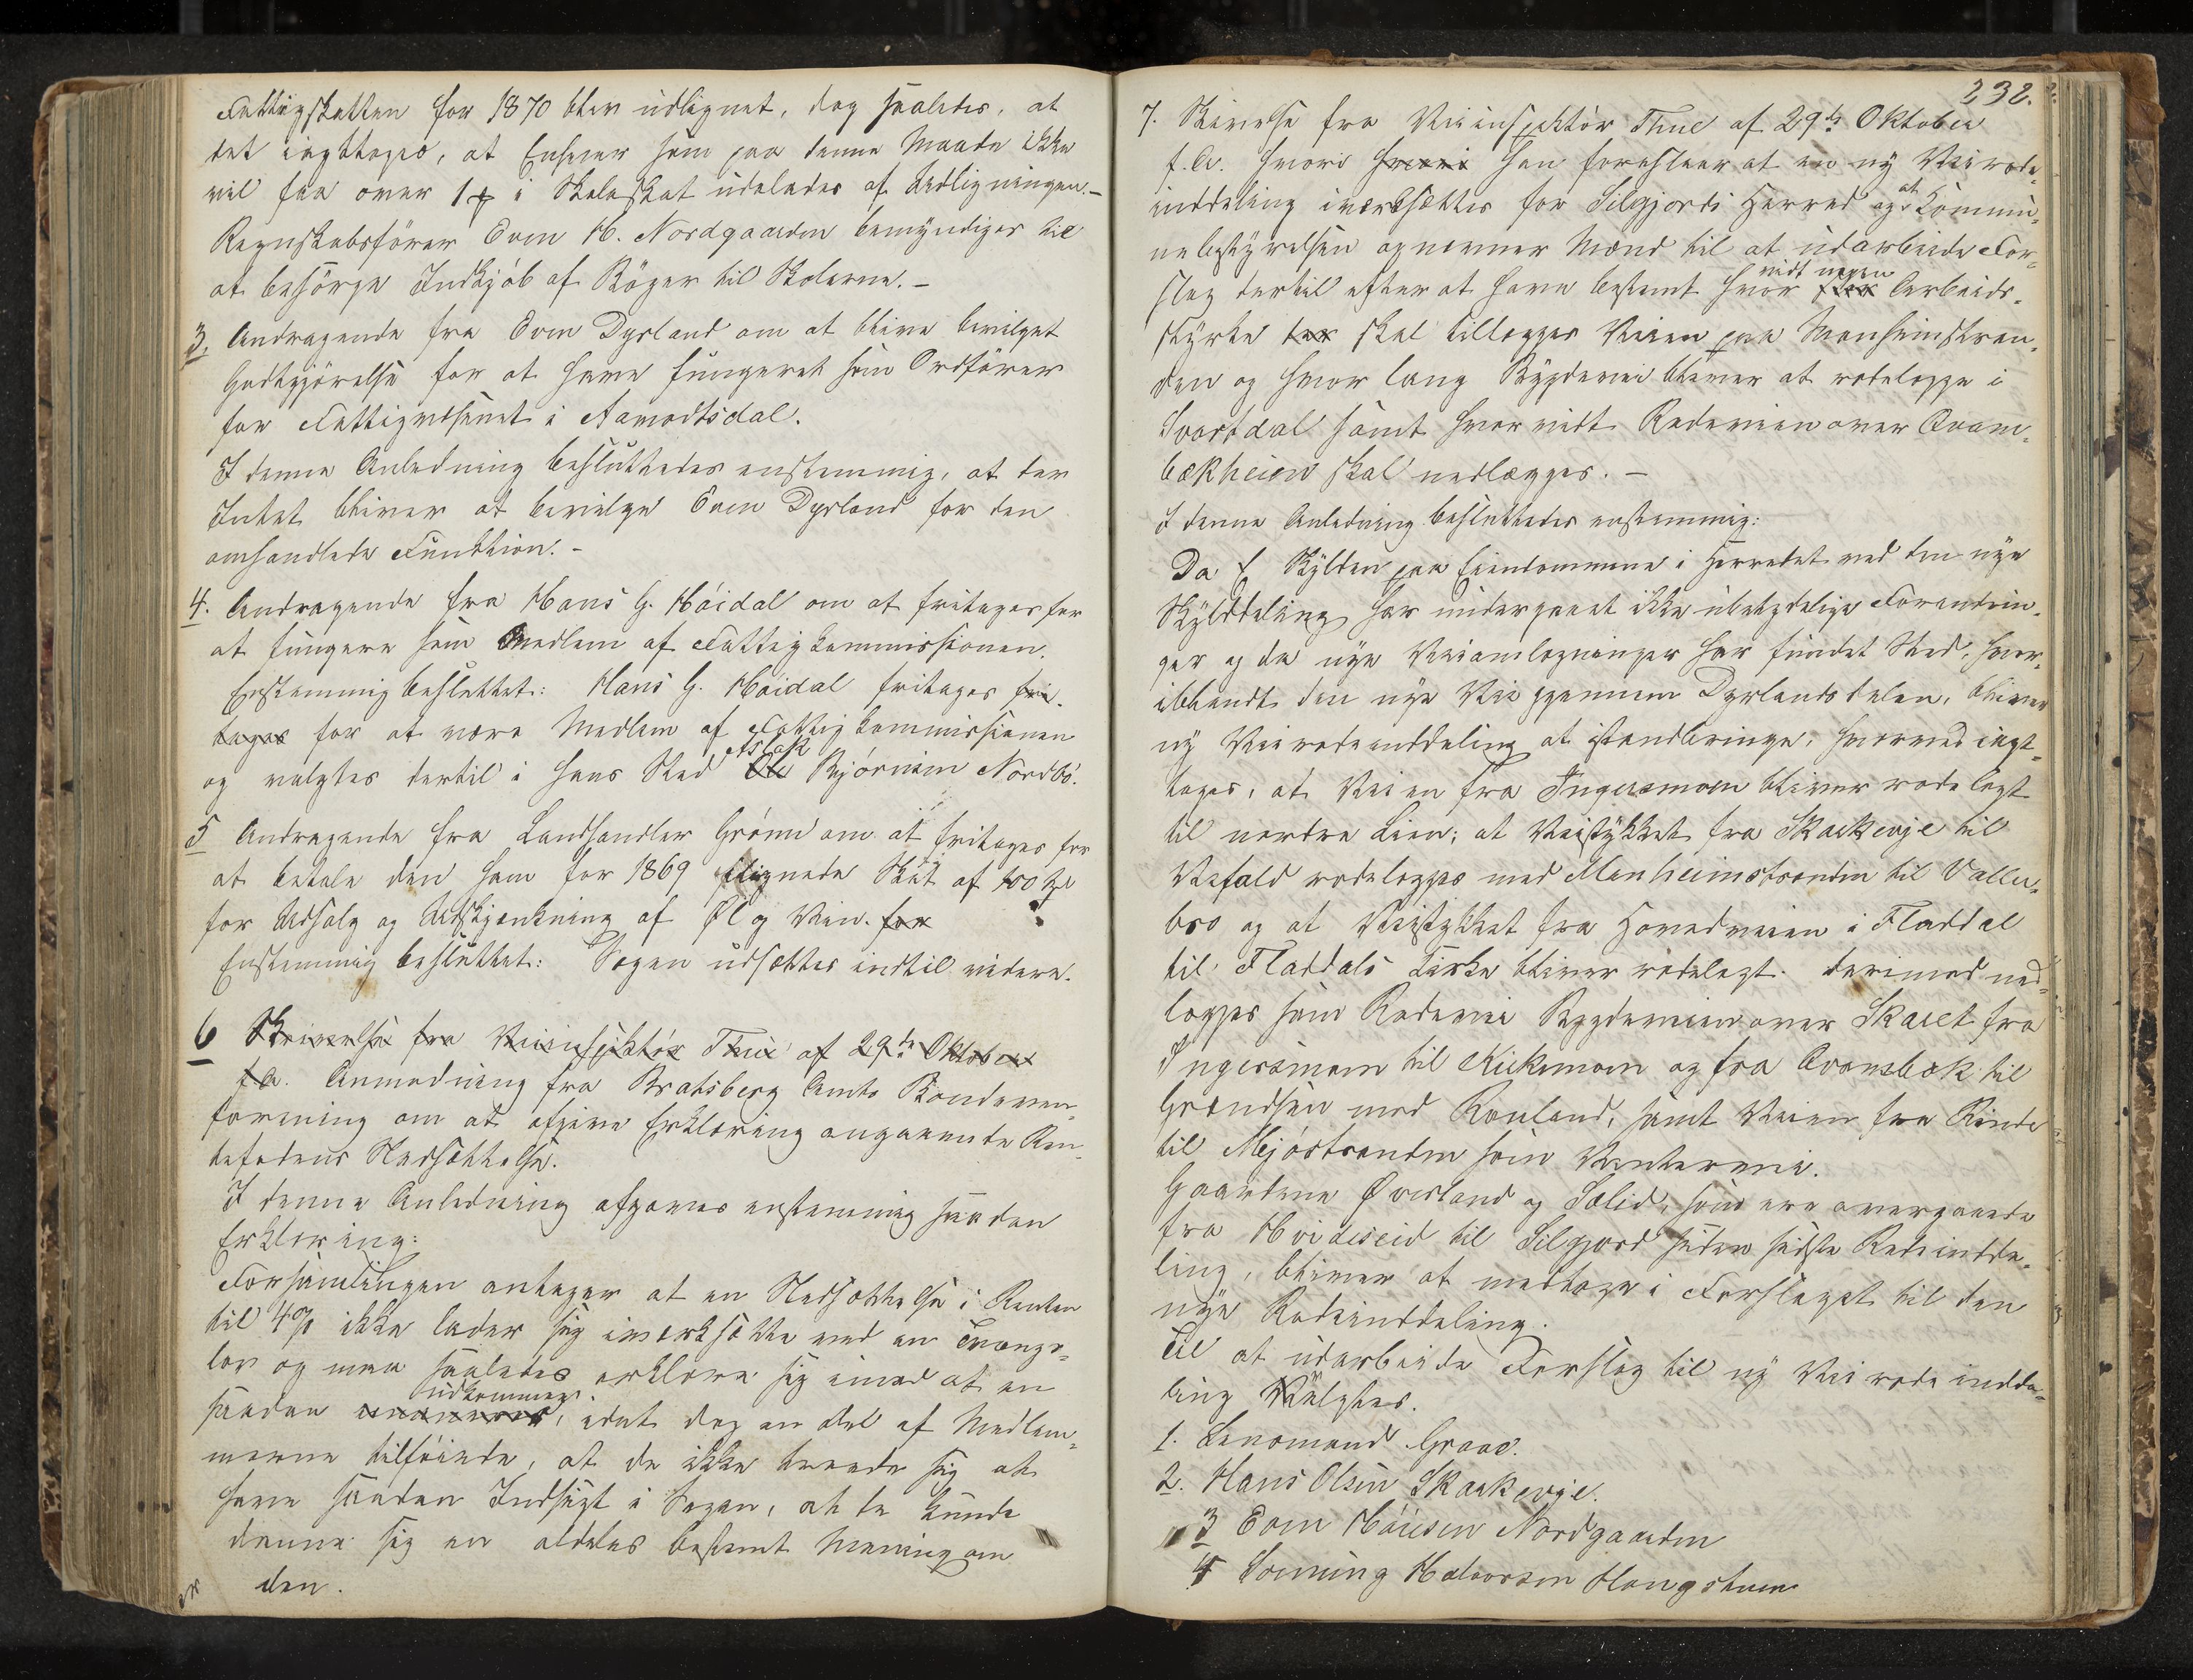 Fattigskatten for 1870 blev udlignet, dog saaledes, at
det iagttages, at Enhver som paa denne Maade ikke
vil faa over 1 ß i Skoleskat udelades af Udligningen.–
Regnskabsfører Even H. Nordgaarden bemyndiges til
at besørge Indkjøb af Bøger til Skolerne.–
3. Andragende fra Even Dyrland om at blive bevilget
Godtgjørelse for at have fungeret som Ordfører
for Fattigvæsenet i Aamodtsdal.
I denne Anledning besluttedes enstemmig, at der
Intet bliver at bevilge Even Dyrland for den
omhandlede Funktion.–
4. Andragende fra Hans G. Höidal om at fritages for
at fungere som Medlem af Fattigkommissionen.
Enstemmig besluttet: Hans G. Höidal fritages fri-
tages for at være Medlem af Fattigkommissionen
og valgtes dertil i hans Sted Ole Aslak Bjørnsen Nordbö.
5 Andragende fra Landhandler Grönn om at fritages for
at betale den ham for 1869 ilignede Skat af 100 Spd
for Udsalg og Udskjænkning af Øl og Vin. for
Enstemmig besluttet: Sagen udsættes indtil videre.
6 Skrivelse fra Veiinspektör Thue af 29de Oktober
f.A. Anmodning fra Bratsberg Amts Bondeven-
forening om at afgive Erklæring angaaende Ren-
tefodens Nedsættelse.
I denne Anledning afgaves enstemmig saadan
Erklæring:
Forsamlingen antager at en Nedsættelse i Renten
til 4% ikke lader sig iværksætte ved en Tvangs-
lov og maa saaledes erklære sig imod at en
saadan udkommer, idet dog en Del af Medlem-
merne tilföiede, at de ikke troede sig at
have saadan Indsigt i Sagen, at de kunde
danne sig en aldeles bestemt Mening om
den.
232.
7. Skrivelse fra Veiinspektör Thue af 29de Oktober
f.A. hvori hvori han foreslaar at en ny Veirode-
inddeling iværksættes for Silgjords Herred og at Kommu-
nebestyrelsen opnævner Mænd til at udarbeide For-
slag dertil efter at have bestemt hvor vidt nogen Arbeids-
styrke der skal tillægges Veien paa Manheimstran-
den og hvor lang Bygdevei bliver at rodelægge i
Svartdal samt hvorvidt Rodeveien over Qvam-
bækheien skal nedlægges.–
I denne Anledning besluttedes enstemmig:
Da Skylden paa Eiendommene i Herredet ved den nye
Skylddeling har undergaaet ikke ubetydelige Forandrin-
ger og da nye Veiomlægninger har fundet Sted, hvor-
iblandt den nye Vei gjennem Dyrlandsdalen, bliver
ny Veirodeinddeling at istandbringe, hvorved iagt-
tages, at Veien fra Ingersmoen bliver rodelagt
til nordre Lien; at Veistykket fra Skarkevje til
Vefald rodelægges med Manheimstranden til Valle-
bro og at Veistykket fra Hovedveien i Flatdal
til Flatdals Kirke bliver rodelagt. Derimod ned-
lægges som Rodevei Bygdeveien over Skaret fra
Ingersmoen til Kikemoen og fra Qvambæk til
Grændsen mod Rouland, samt Veien fra Rinde
til Mjöstranden som Vintervei.
Gaardene Øverland og Sælid, som ere overgaaede
fra Hvideseid til Silgjord siden sidste Rodeindde-
ling, bliver at medtage i Forslaget til den
nye Rodeinddeling.
Til at udarbeide Forslag til ny Veirodeindde-
ling Valgtes.
1. Lensmand Graae.
2. Hans Olsen Skarkevje.
3 Even Höiesen Nordgaarden
4 Halvorsen